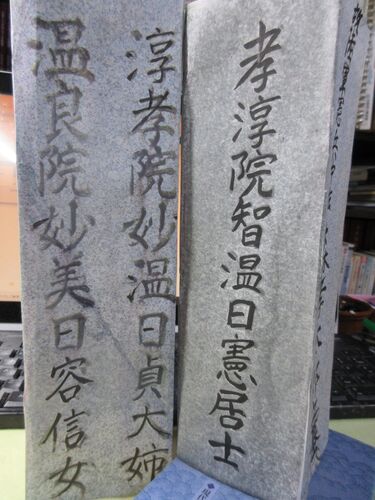 孝淳院智温日憲居士
淳孝院妙温日貞大姉
温良院妙美日容信女